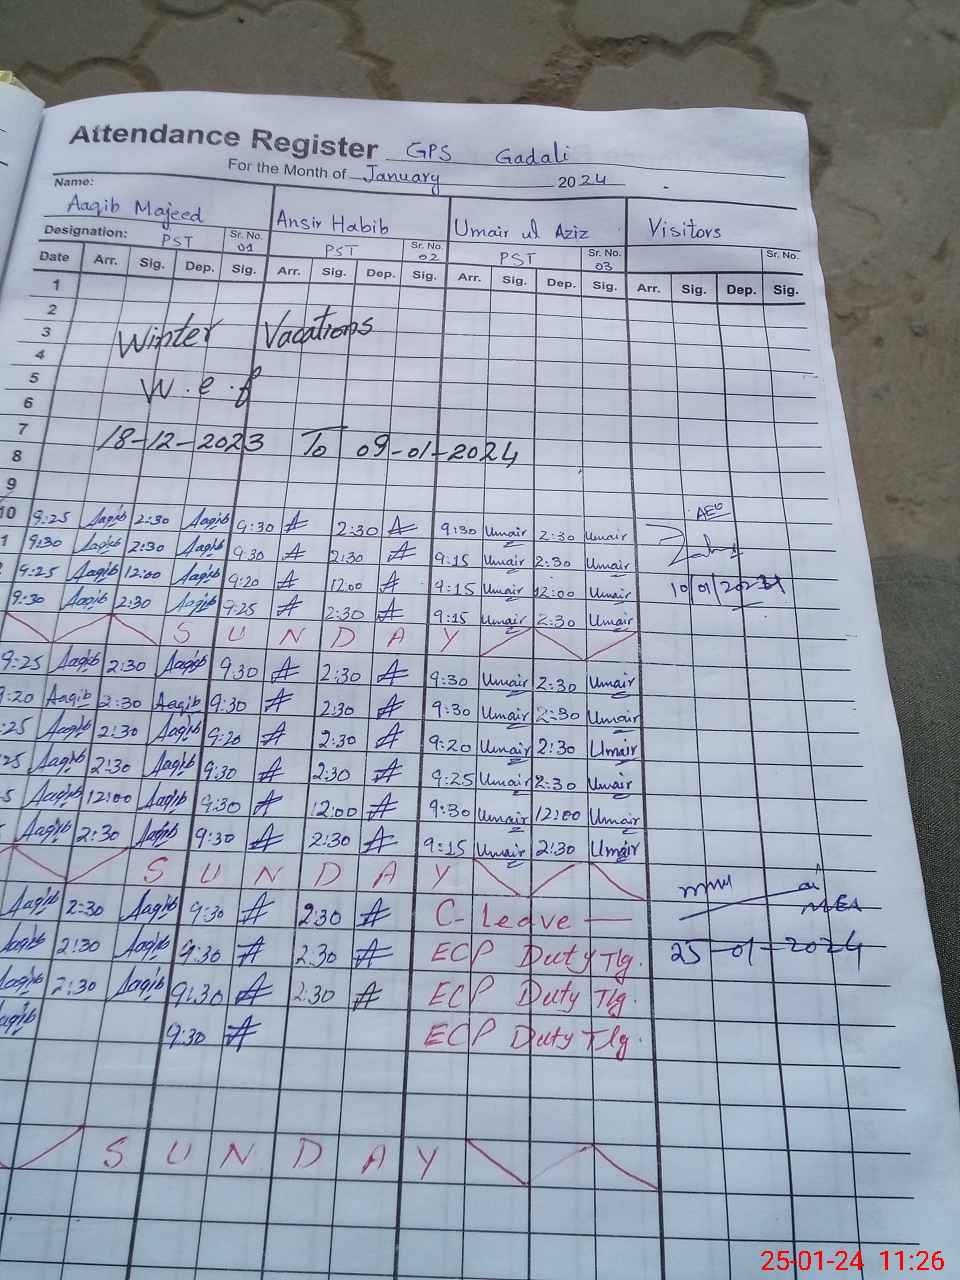 Attendance Register GPS Gadali
For the Month of January 2024
Name:
Aaqib Majeed Ansir Habib Umair ul Aziz Visitors
Designation: PST Sr. No. 01 PST Sr. No. 02 PST Sr. No. 03 Sr. No.
Date Arr. Sig. Dep. Sig. Arr. Sig. Dep. Sig. Arr. Sig. Dep. Sig. Arr. Sig. Dep. Sig.
1
2
3 Winter Vacations
4
5 W.e.f
6
7 18-12-2023 To 09-01-2024
8
9
10 9:25 Aaqib 2:30 Aaqib 9:30 A 2:30 A 9:30 Umair 2:30 Umair AEO
1 9:30 Aaqib 2:30 Aaqib 9:30 A 2:30 A 9:15 Umair 2:30 Umair
9:25 Aaqib 12:00 Aaqib 9:20 A 12:00 A 9:15 Umair 12:00 Umair 10/01/2024
9:30 Aaqib 2:30 Aaqib 9:25 A 2:30 A 9:15 Umair 2:30 Umair
SUNDAY
9:25 Aaqib 2:30 Aaqib 9:30 A 2:30 A 9:30 Umair 2:30 Umair
9:20 Aaqib 2:30 Aaqib 9:30 A 2:30 A 9:30 Umair 2:30 Umair
:25 Aaqib 2:30 Aaqib 9:20 A 2:30 A 9:20 Umair 2:30 Umair
25 Aaqib 2:30 Aaqib 9:30 A 2:30 A 9:25 Umair 2:30 Umair
5 Aaqib 12:00 Aaqib 9:30 A 12:00 A 9:30 Umair 12:00 Umair
Aaqib 2:30 Aaqib 9:30 A 2:30 A 9:15 Umair 2:30 Umair
SUNDAY
Aaqib 2:30 Aaqib 9:30 A 2:30 A C-Leave MEA
Aaqib 2:30 Aaqib 9:30 A 2:30 A ECP Duty Tlg. 25-01-2024
Aaqib 2:30 Aaqib 9:30 A 2:30 A ECP Duty Tlg.
Aaqib 9:30 A ECP Duty Tlg.
SUNDAY
25-01-24 11:26